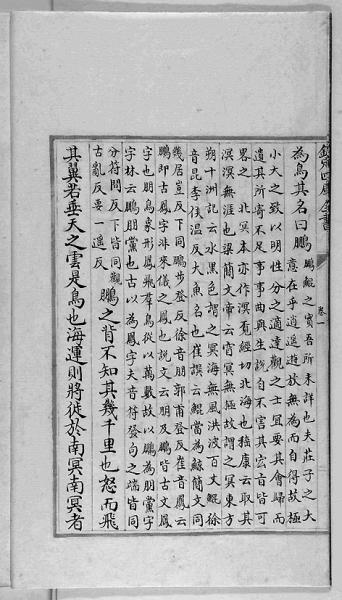 欽定四庫全書
卷一
為鳥其名曰鵬
鵬鯤之實吾所未詳也夫莊子之大
意在乎逍遙遊放無為而自得故極
小大之致以明性分之適達觀之士宜要其會歸而
遺其所寄不足事事曲與生說自不害其宏旨皆可
畧之 北冥本亦作溟覓經切北海也嵇康云取其
溟漠無涯也梁簡文帝云窅冥無極故謂之冥東方
朔十洲記云水黑色謂之冥海無風洪波百丈鯤徐
音昆李侯温反大魚名也崔譔云鯤當為鯨簡文同
幾居豈反下同鵬步登反徐音朋郭甫登反崔音鳳云
鵬即古鳳字非來儀之鳳也說文云朋及鵬皆古文鳳
字也朋鳥象形鳳飛羣鳥從以萬數故以鵬為朋黨字
字林云鵬朋黨也古以為鳳字夫音符發句之端皆同
分符問反下皆同觀
古亂反要一遥反
鵬之背不知其幾千里也怒而飛
其翼若垂天之雲是鳥也海運則將徙於南冥南冥者